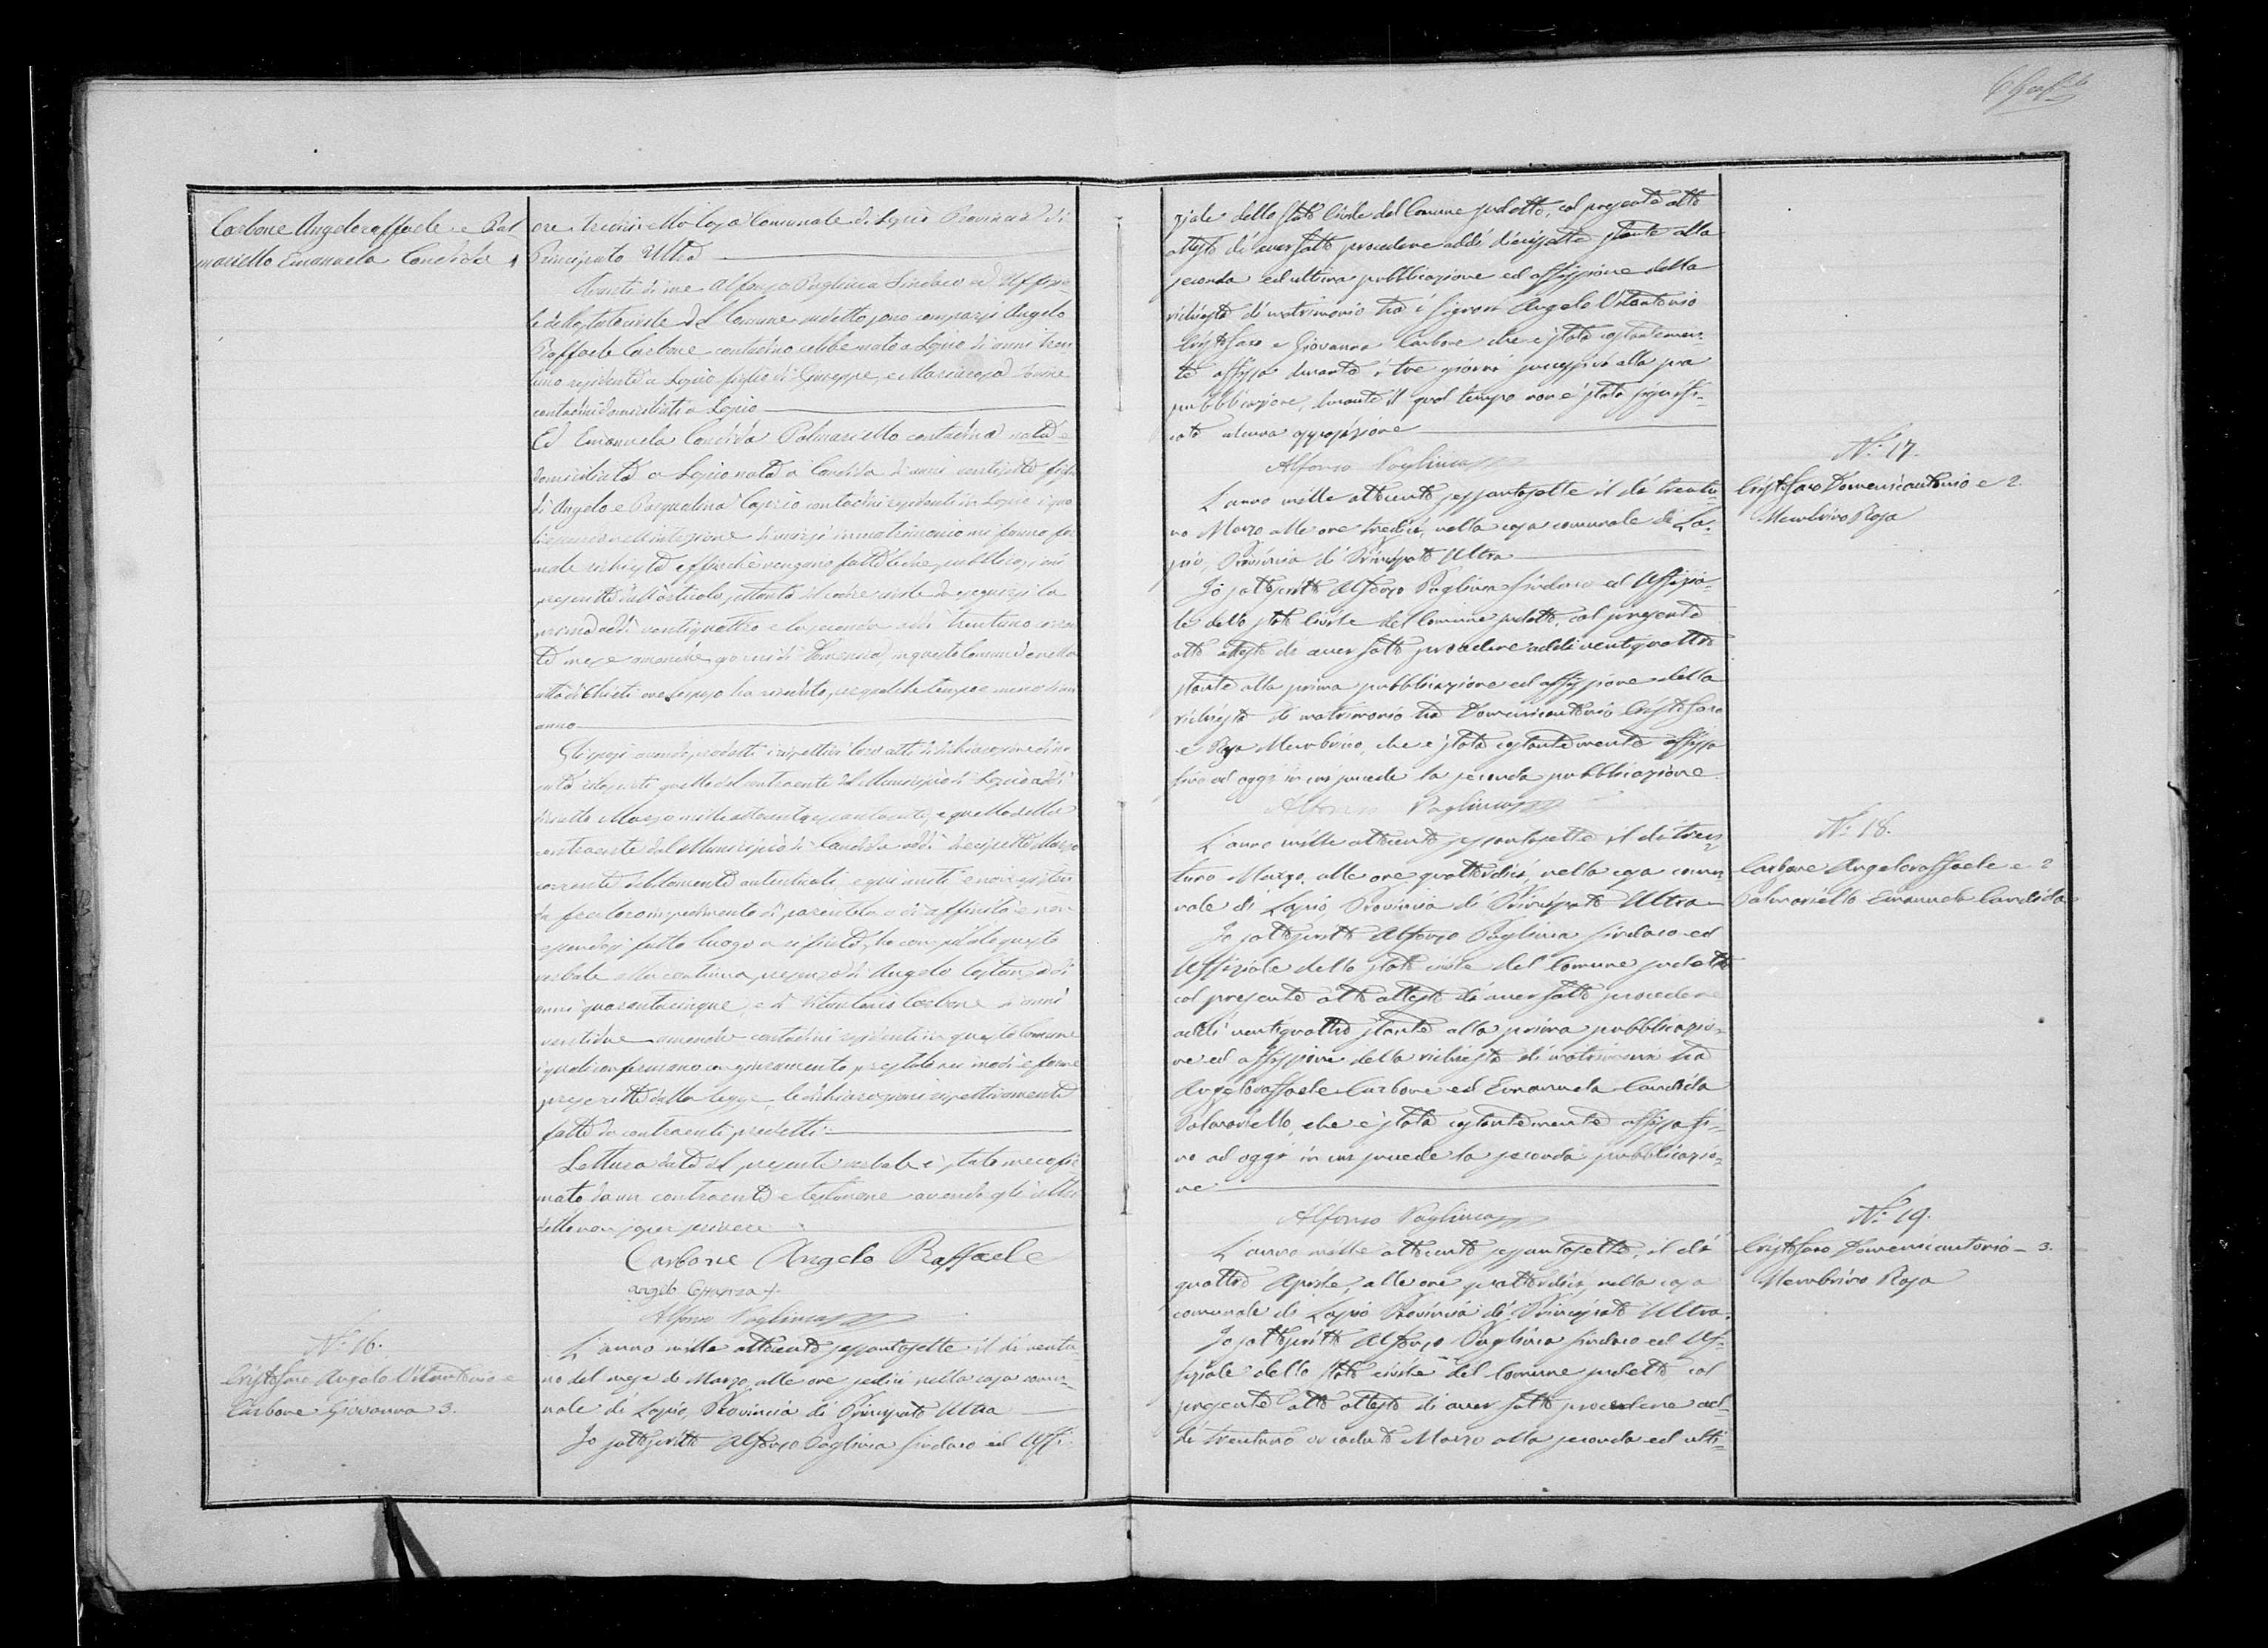 Carbone Angeloraffaele e Pal-
mariello Emanuela Candida 1
ore tredici nella Casa Comunale di Lapio Provincia di
Principato Ultra
Avanti di me Alfonso Pagliuca Sindaco ed Uffizia-
le dello stato civile del Comune sudetto sono comparsi Angelo
Raffaele Carbone contadino celibe nato a Lapio di anni tren
tuno residente a Lapio figlio di Giuseppe, e Mariarosa
contadini domiciliati a Lapio
Ed Emanuela Candida Palmariello contadina nata e
domiciliata a Lapio nata a Candida di anni ventisette figlia
di Angelo e Pasqualina Caprio contadini residenti in Lapio i qua
li essendo nell'intenzione di unirsi in matrimonio mi fanno for
male richiesta affinchè vengano fatte le due pubblicazioni
prescritte dall'articolo settanta del codice civile da eseguirsi la
prima addì ventiquattro e la seconda addì trentuno corren
te mese amendue giorni di Domenica, in questo Comune e nella
città di Chieti ove lo sposo ha risieduto per qualche tempo e meno di un
anno
Gli sposi avendo prodotti i rispettivi loro atti di
nascita rilasciati quello del contraente dal Municipio di Lapio addì
Marzo mille ottocento sessantasette, e quello della
contraente dal Municipio di Candida addì diecisette Marzo
corrente debitamente autenticati, e quì uniti e non esisten
do fra loro impedimento di parentela o di affinità e non
essendosi fatto luogo a rifiuto, ho compilato questo
verbale alla continua presenza di Angelo Costanza di
anni quarantacinque, e di Vitantonio Carbone di anni
ventidue amendue contadini residenti in questo Comune
i quali confermano con giuramento prestato nei modi e forme
prescritte dalla legge, le dichiarazioni rispettivamente
fatte da contraenti predetti
Lettura data del presente verbale è stato meco fir
mato da un contraente e testimone avendo gli altri
detto non saper scrivere
Carbone Angelo Raffaele
Angelo Costanza +
Alfonso Pagliuca
N.° 16.
Cristofaro Angelo Vitantonio e
Carbone Giovanna 3.
L'anno mille ottocento sessantasette il di ventu-
no del mese di Marzo, alle ore sedici nella casa comu-
nale di Lapio, Provincia di Principato Ultra
Io sottoscritto Alfonso Pagliuca sindaco ed Uffi-
ziale dello stato Civile del Comune sudetto, col presente atto
attesto di aver fatto procedere addì diecisette stante alla
seconda ed ultima pubblicazione ed affissione della
richiesta di matrimonio tra i signori Angelo Vitantonio
Cristofaro e Giovanna Carbone che è stata costantemen-
te affissa durante i tre giorni successivi alla sua
pubblicazione, durante il qual tempo non è stata significa-
cata alcuna opposizione
Alfonso Pagliuca
N.° 17.
Cristofaro Domenicantonio e 2.
Membrino Rosa
L'anno mille ottocento sessantasette il di trentu-
no Marzo alle ore tredici, nella casa comunale di La-
pio, Provincia di Principato Ultra
Io sottoscritto Alfonso Pagliuca sindaco ed Uffizia-
le dello stato Civile del Comune sudetto, col presente
atto attesto di aver fatto procedere addì ventiquattro
stante alla prima pubblicazione ed affissione della
richiesta di matrimonio tra Domenicantonio Cristofaro
e Rosa Membrino, che è stata costantemente affissa
fino ad oggi in cui succede la seconda pubblicazione
Alfonso Pagliuca
N.° 18.
Carbone Angeloraffaele e 2
Palmariello Emanuela Candida
L'anno mille ottocento sessantasette il di tren-
tuno Marzo, alle ore quattordici, nella casa comu-
nale di Lapio Provincia di Principato Ultra
Io sottoscritto Alfonso Pagliuca sindaco ed
Uffiziale dello stato civile del Comune sudetto
col presente atto attesto di aver fatto procedere
addì ventiquattro stante alla prima pubblicazio-
ne ed affissione della richiesta di matrimonio tra
Angeloraffaele Carbone ed Emanuela Candida
Palmariello, che è stata costantemente affissa fi-
no ad oggi in cui succede la seconda pubblicazio-
ne
Alfonso Pagliuca
N.° 19.
Cristofaro Domenicantonio - 3.
Membrino Rosa
L'anno mille ottocento sessantasette, il di
quattro Aprile, alle ore quattordici, nella casa
comunale di Lapio Provincia di Principato Ultra.
Io sottoscritto Alfonso Pagliuca sindaco ed Uf-
fiziale dello stato civile del Comune sudetto col
presente atto attesto di aver fatto procedere ad-
dì trentuno scaduto Marzo alla seconda ed ulti-